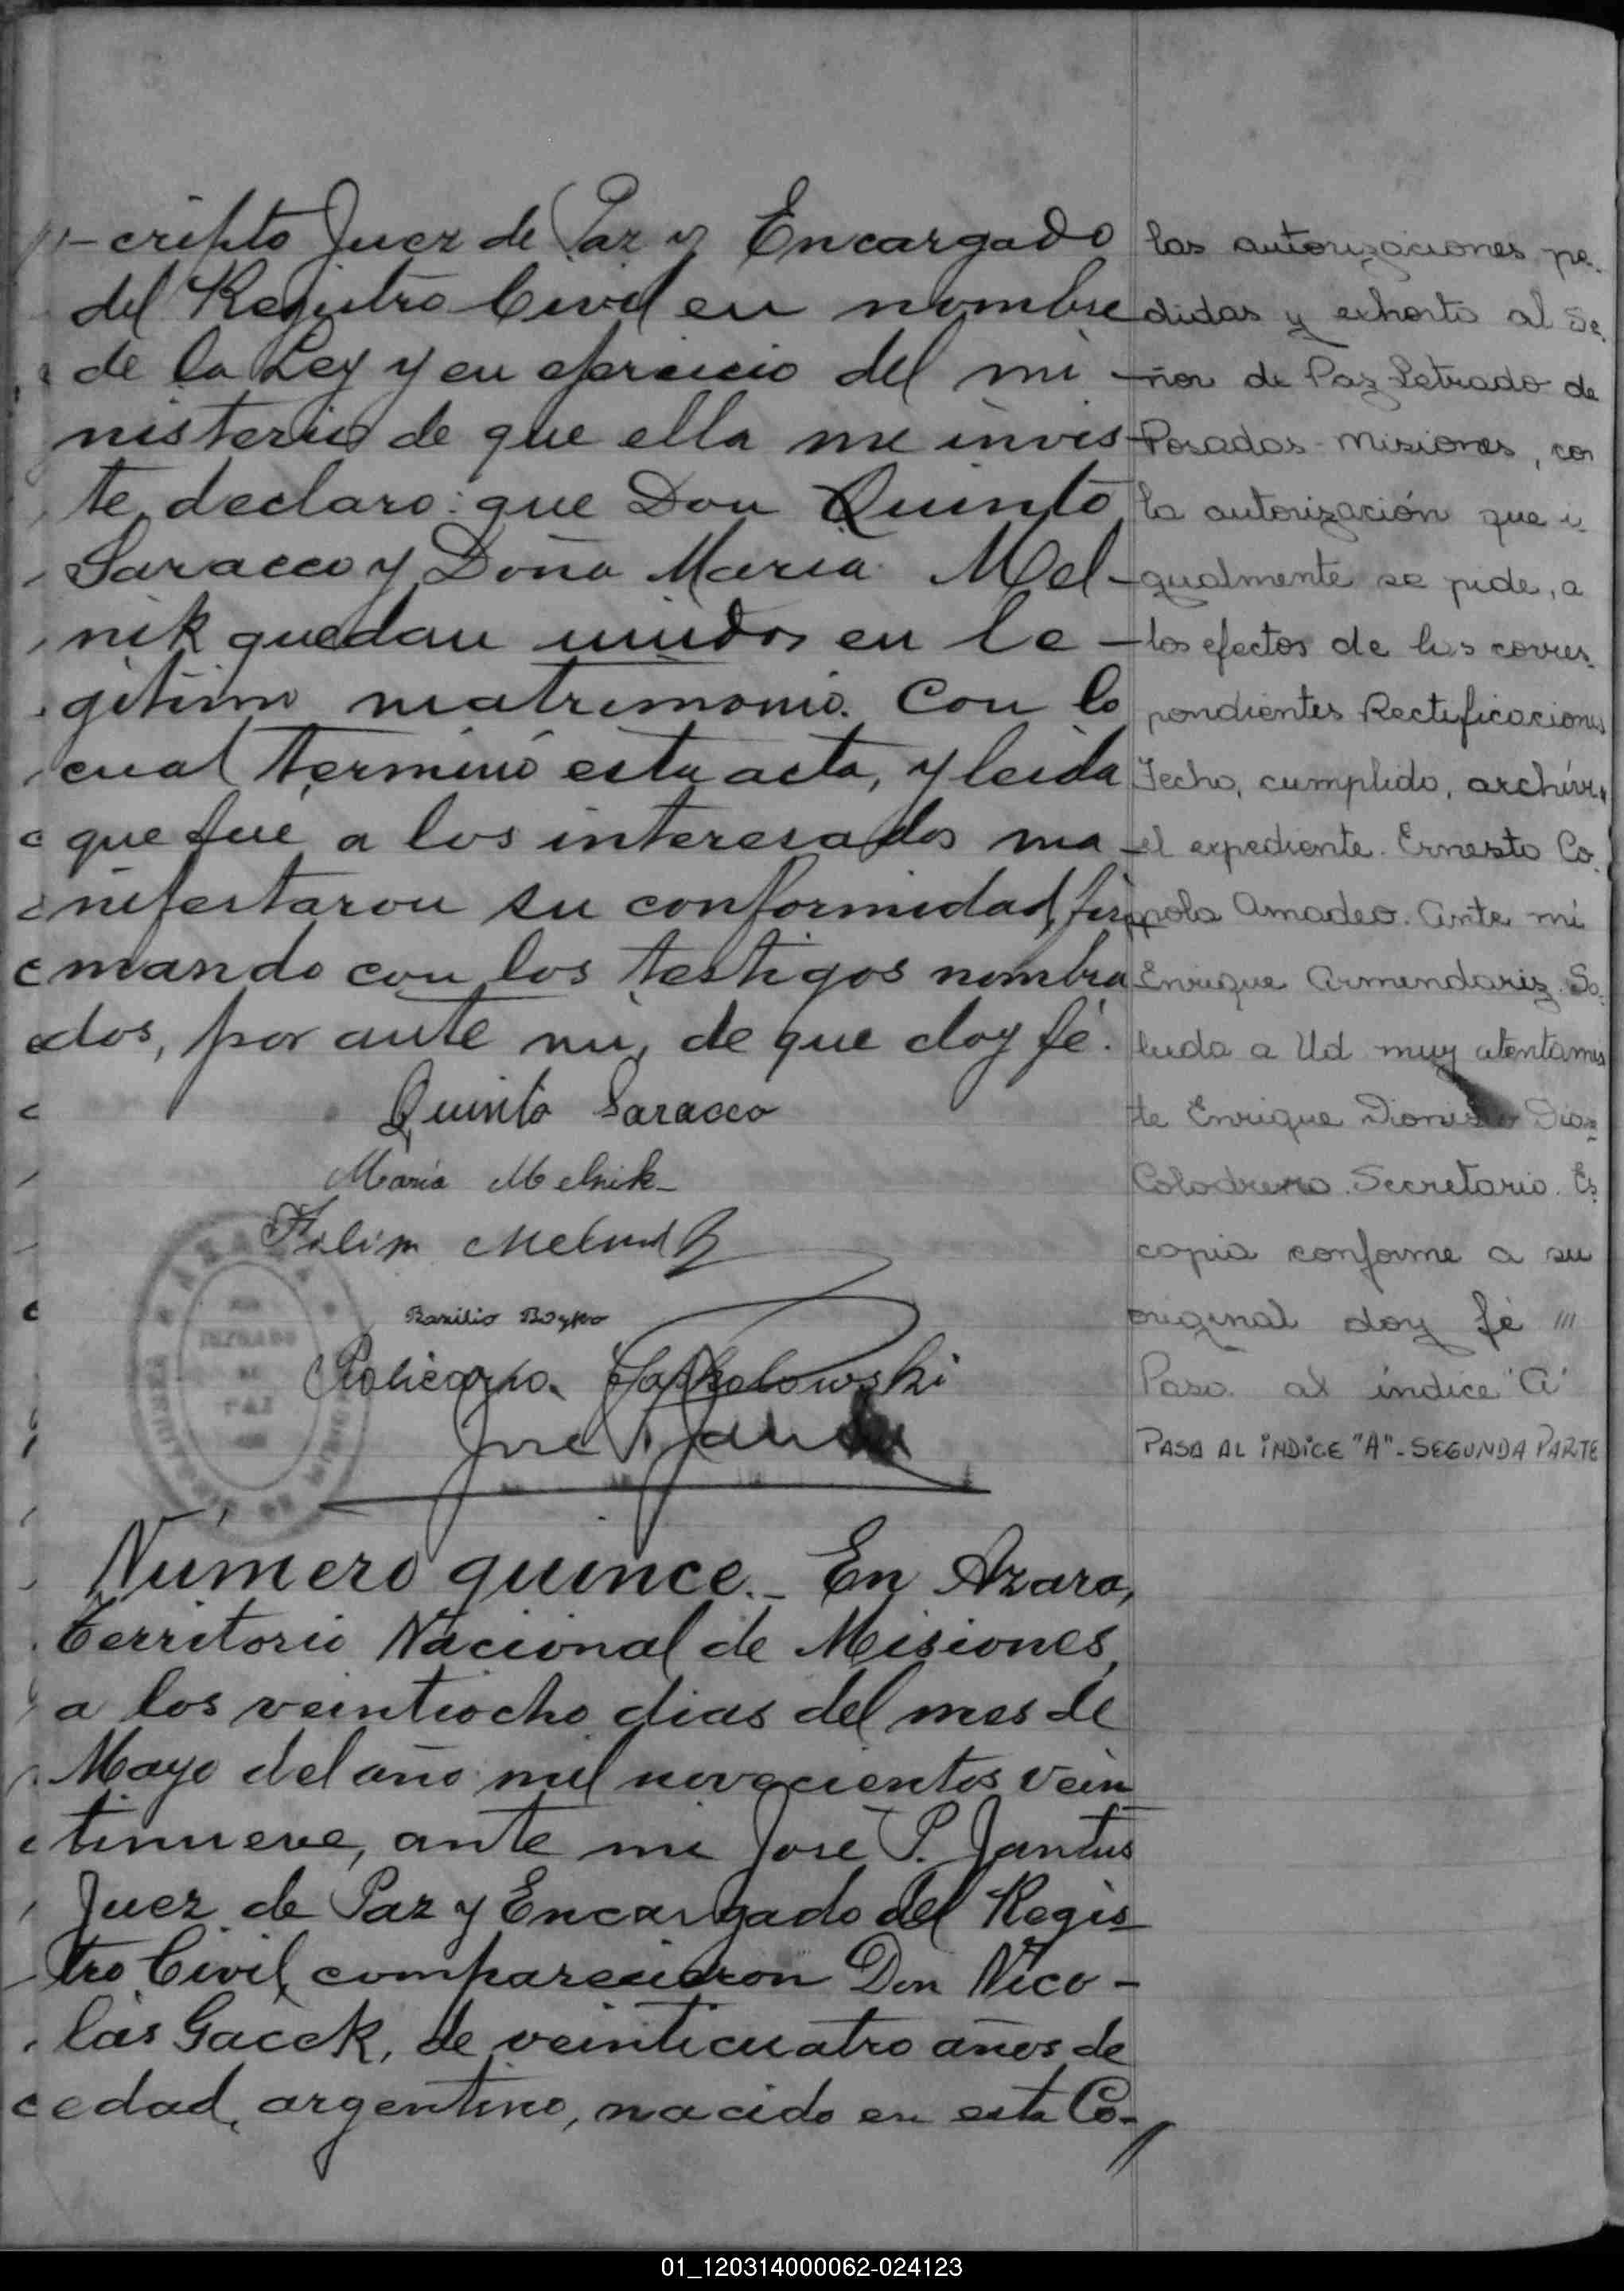 -cripto Juez de Paz y Encargado
del Registro Civil en nombre
de la Ley y en ejercicio del mi-
nisterio de que ella me invis-
te declaro: que Don Quinto
Saracco y Doña Maria Mel-
nik quedan unidos en le-
gitimo matrimonio. Con lo
cual terminó esta acta, y leida
que fué a los interesados ma-
nifestaron su conformidad, fir-
mando con los testigos nombra
dos, por ante mi, de que doy fé.
Quinto Saracco
María Melnik
Basilio Boyko
Policarpo
José P. Jantus
JUZGADO
DE
PAZ
AZARA
Número quince._ En Azara,
Territorio Nacional de Misiones,
a los veintiocho dias del mes de
Mayo del año mil novecientos vein
tinueve, ante mi José P. Jantus
Juez de Paz y Encargado del Regis
tro Civil, comparecieron Don Nico-
lás Gacek, de veinticuatro años de
edad, argentino, nacido en esta Co-
las autorizaciones pe-
didas y exhorto al Se-
ñor de Paz Letrado de
Posadas - Misiones, con
la autorización que i-
gualmente se pide, a
los efectos de las corres-
pondientes Rectificaciones
Fecho, cumplido, archívese
el expediente. Ernesto Co-
pola Amadeo. Ante mi
Enrique Armendariz. Sa-
luda a Ud muy atentamen
te Enrique Dionisio Diaz
Colodrero. Secretario. Es
copia conforme a su
original doy fé ///
Pasa al índice "A"
PASA AL ÍNDICE "A" - SEGUNDA PARTE
01_120314000062-024123